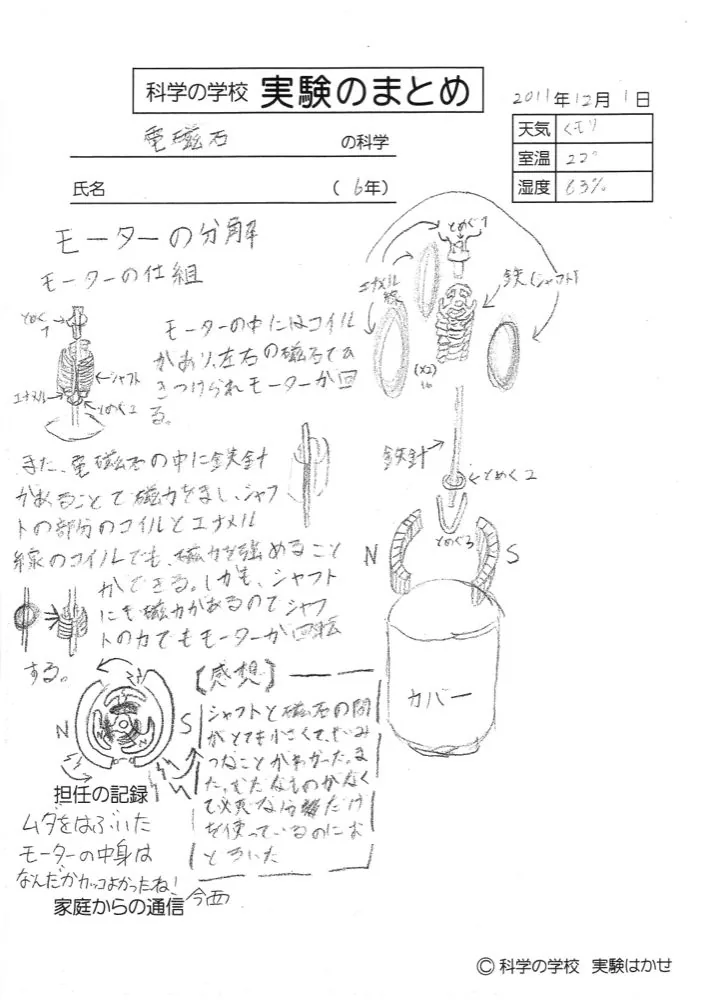 科学の学校 実験のまとめ
2011年12月1日
天気 くもり
室温 22°
湿度 63%
電磁石 の科学
氏名 (6年)
モーターの分解
モーターの仕組
モーターの中にはコイル
があり、左右の磁石でひ
きつけられモーターが回
る。
とめぐ1
シャフト
エナメル
とめぐ2
また、電磁石の中に鉄針
があることで磁力をまし、シャフ
トの部分のコイルとエナメル
線のコイルでも、磁力を強めること
ができる。しかも、シャフト
にも磁力があるのでシャフ
トの力でもモーターが回転
する。
とめぐ1
エナメル
線
鉄(シャフト)
(×2)
鉄針
とめぐ2
とめぐ3
N
S
カバー
N
S
【感想】
シャフトと磁石の間
がとても小さくて、ちみ
つなことがわかった。ま
た、むだなものがなく
て必要な分だけ
を使っているのにお
どろいた
担任の記録
ムダをはぶいた
モーターの中身は
なんだかカッコよかったね!
今西
家庭からの通信
© 科学の学校 実験はかせ